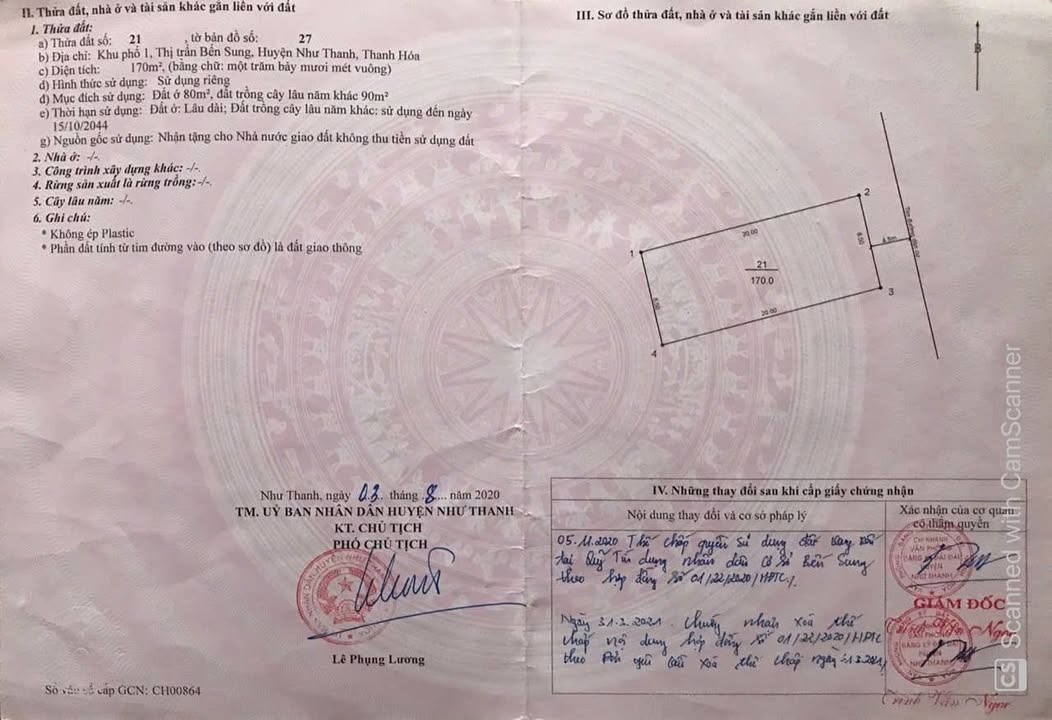 II. Thửa đất, nhà ở và tài sản khác gắn liền với đất
1. Thửa đất:
a) Thửa đất số: 21 , tờ bản đồ số: 27
b) Địa chỉ: Khu phố 1, Thị trấn Bến Sung, Huyện Như Thanh, Thanh Hóa
c) Diện tích: 170m², (bằng chữ: một trăm bảy mươi mét vuông)
d) Hình thức sử dụng: Sử dụng riêng
đ) Mục đích sử dụng: Đất ở 80m², đất trồng cây lâu năm khác 90m²
e) Thời hạn sử dụng: Đất ở: Lâu dài; Đất trồng cây lâu năm khác: sử dụng đến ngày
15/10/2044
g) Nguồn gốc sử dụng: Nhận tặng cho Nhà nước giao đất không thu tiền sử dụng đất
2. Nhà ở: -/-.
3. Công trình xây dựng khác: -/-.
4. Rừng sản xuất là rừng trồng:-/-.
5. Cây lâu năm: -/-.
6. Ghi chú:
* Không ép Plastic
* Phần đất tính từ tim đường vào (theo sơ đồ) là đất giao thông
Như Thanh, ngày 03 tháng 8 năm 2020
TM. UỶ BAN NHÂN DÂN HUYỆN NHƯ THANH
KT. CHỦ TỊCH
PHÓ CHỦ TỊCH
Lê Phụng Lương
Số vào sổ cấp GCN: CH00864
III. Sơ đồ thửa đất, nhà ở và tài sản khác gắn liền với đất
B
1
20.00
2
8.50
4.5m
21
170.0
8.50
20.00
3
4
IV. Những thay đổi sau khi cấp giấy chứng nhận
Nội dung thay đổi và cơ sở pháp lý
Xác nhận của cơ quan
có thẩm quyền
05.11.2020 Thế chấp quyền sử dụng đất
tại Quỹ Tín dụng nhân dân Cơ Sở Bến Sung
theo hợp đồng số 01/22/2020/HĐTC./
Ngày 31.3.2021. Chứng nhận xoá thế
chấp nội dung hợp đồng số 01/22/2020/HĐTC
theo Đơn yêu cầu xoá thế chấp ngày
GIÁM ĐỐC
Trịnh Văn Ngọc
Trịnh Văn Ngọc
CS Scanned with CamScanner